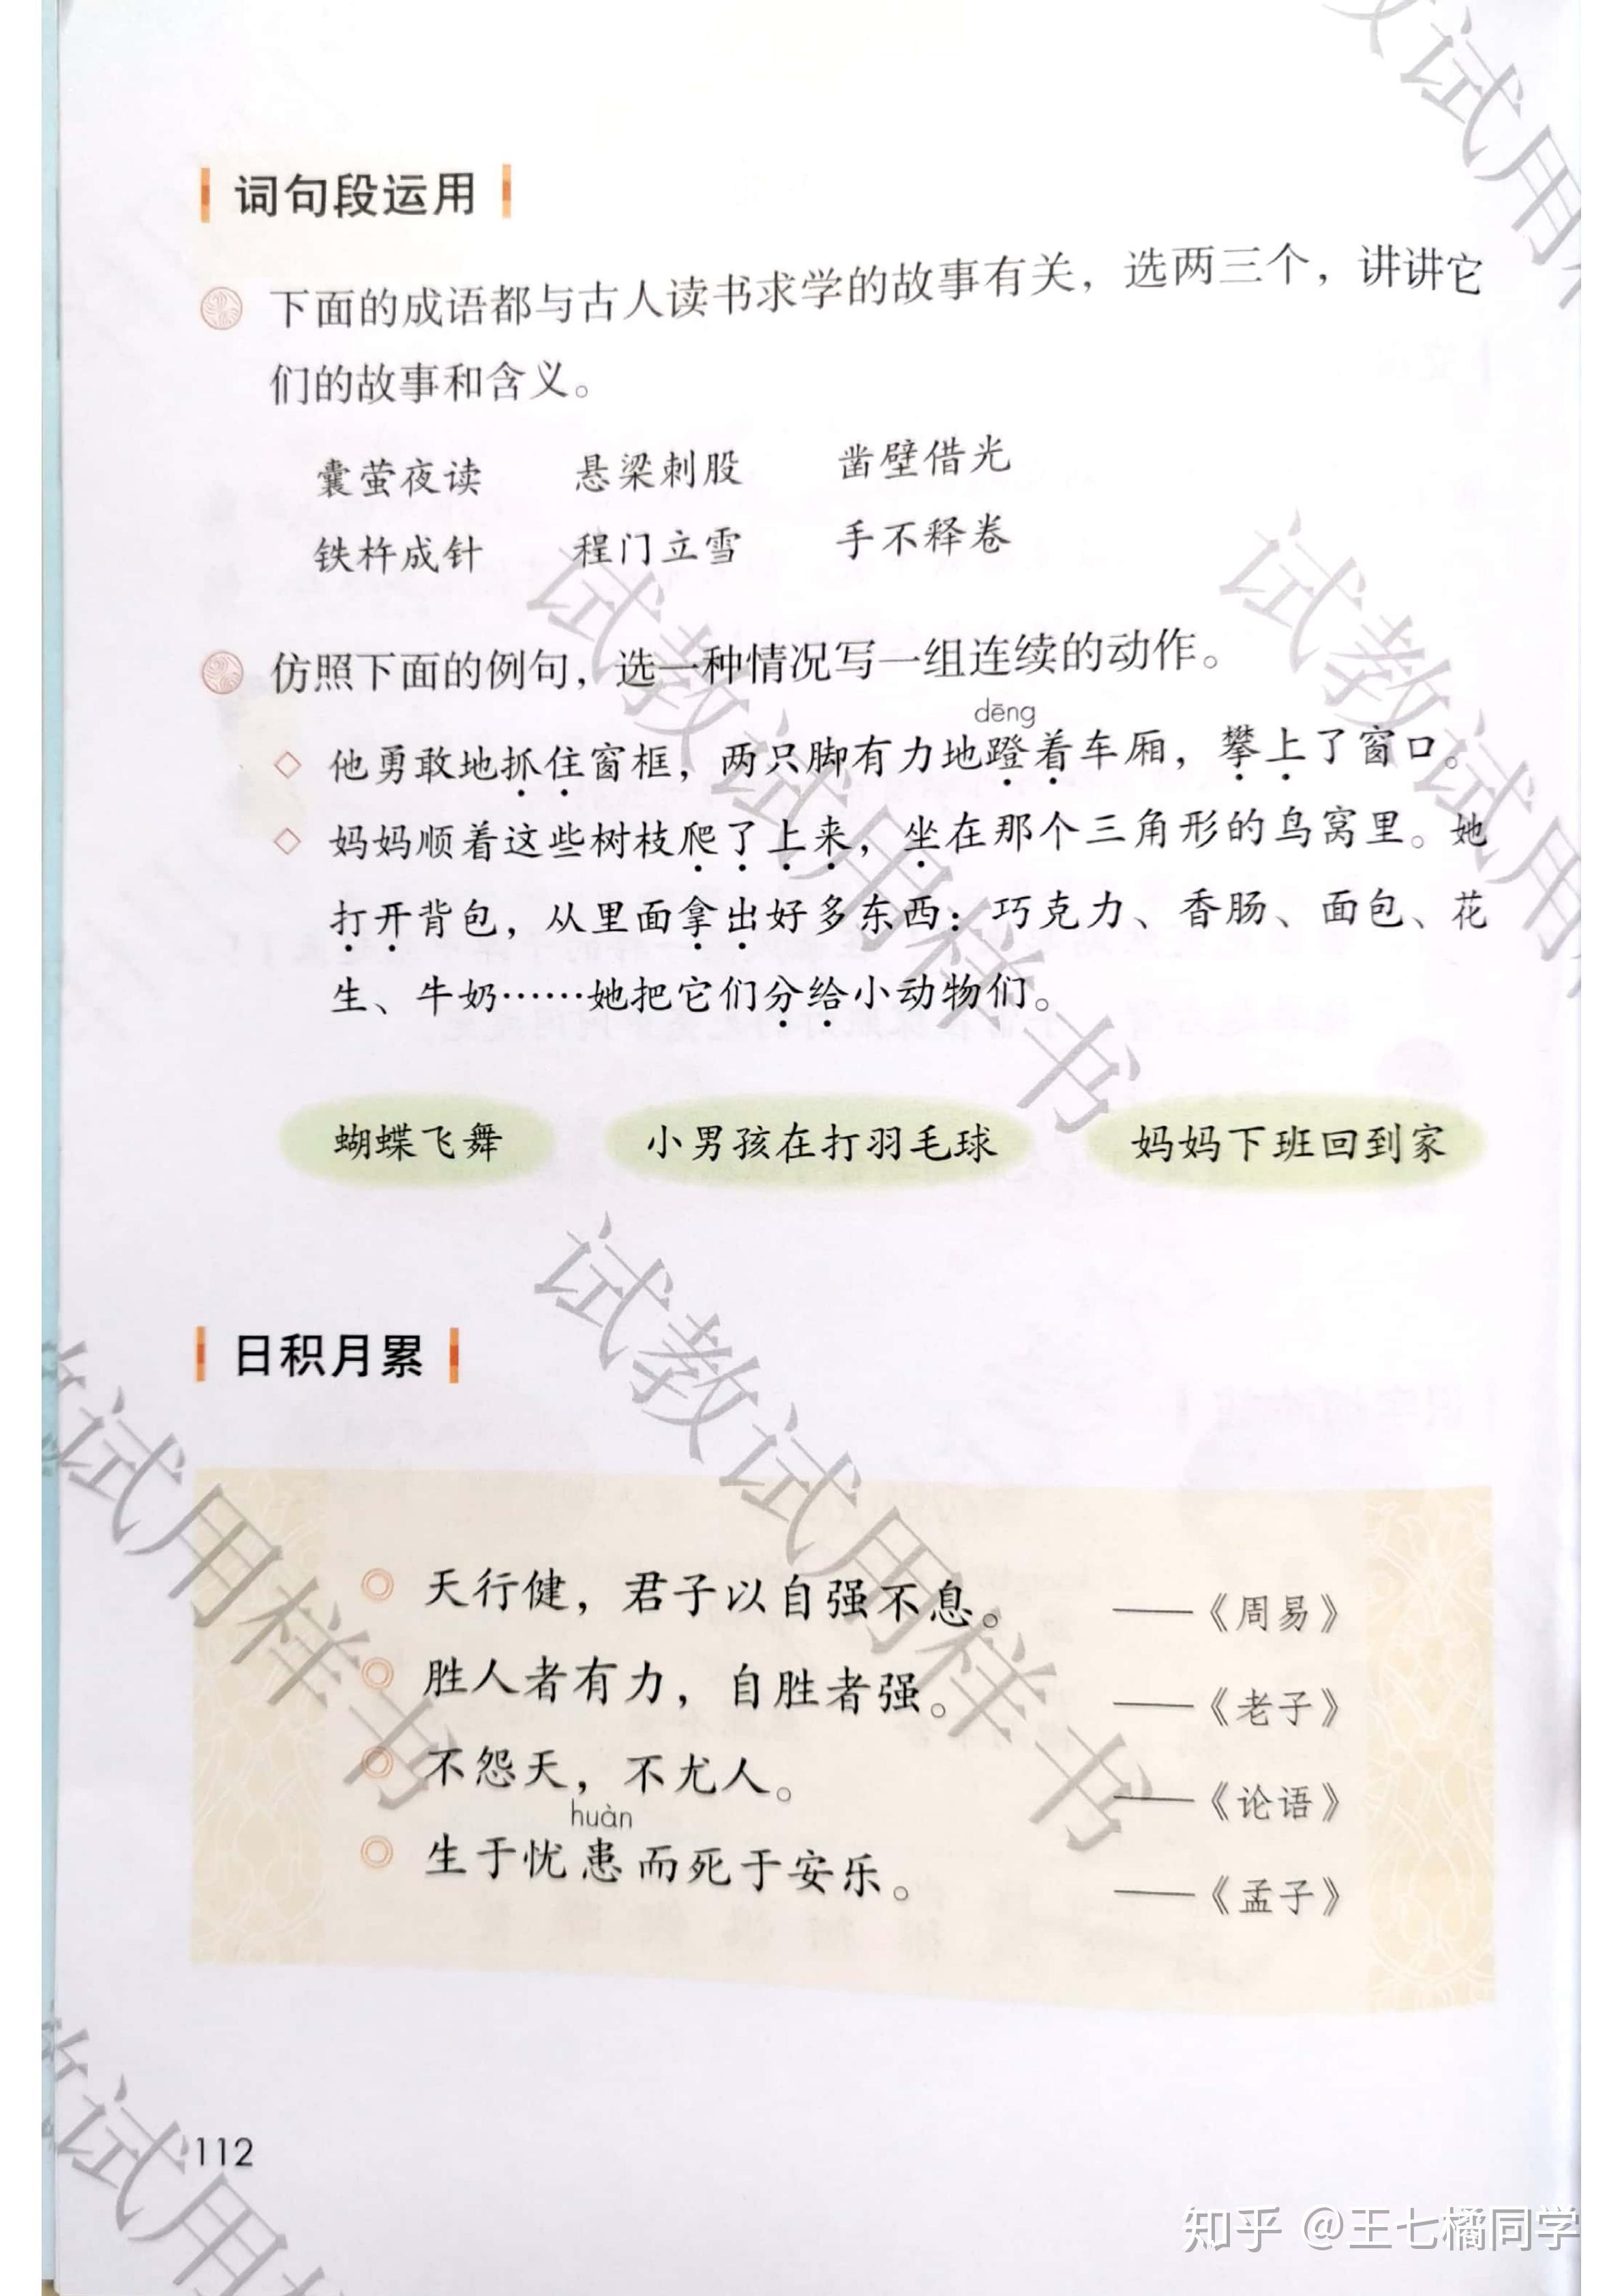 词句段运用
下面的成语都与古人读书求学的故事有关，选两三个，讲讲它
们的故事和含义。
囊萤夜读 悬梁刺股 凿壁借光
铁杵成针 程门立雪 手不释卷
仿照下面的例句，选一种情况写一组连续的动作。
dēng
他勇敢地抓住窗框，两只脚有力地蹬着车厢，攀上了窗口。
妈妈顺着这些树枝爬了上来，坐在那个三角形的鸟窝里。她
打开背包，从里面拿出好多东西：巧克力、香肠、面包、花
生、牛奶……她把它们分给小动物们。
蝴蝶飞舞 小男孩在打羽毛球 妈妈下班回到家
日积月累
天行健，君子以自强不息。 ——《周易》
胜人者有力，自胜者强。 ——《老子》
不怨天，不尤人。 ——《论语》
huàn
生于忧患而死于安乐。 ——《孟子》
112
试教试用样书
试教试用样书
试教试用样书
教试用样书
教试用样
教试用
知乎 @王七橘同学